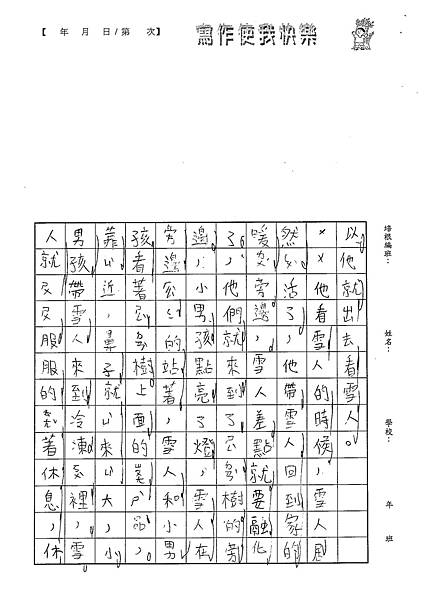 【 年 月 日/第 次】
寫作使我快樂
培根編班：
姓名：
學校：
年 班
以他就出去看雪人。
他看雪人的時候，雪人居
然活了，他帶雪人回到家的
暖旁邊，雪人差點就要融化
了，他們就來到了樹的旁
邊，小男孩點亮了燈，雪人在
旁邊的站著，雪人和小男
孩看著樹上面的品，
靠近，鼻子就來大，小
男孩帶雪人來到冷凍裡，雪
人就又又服服的著休息，休